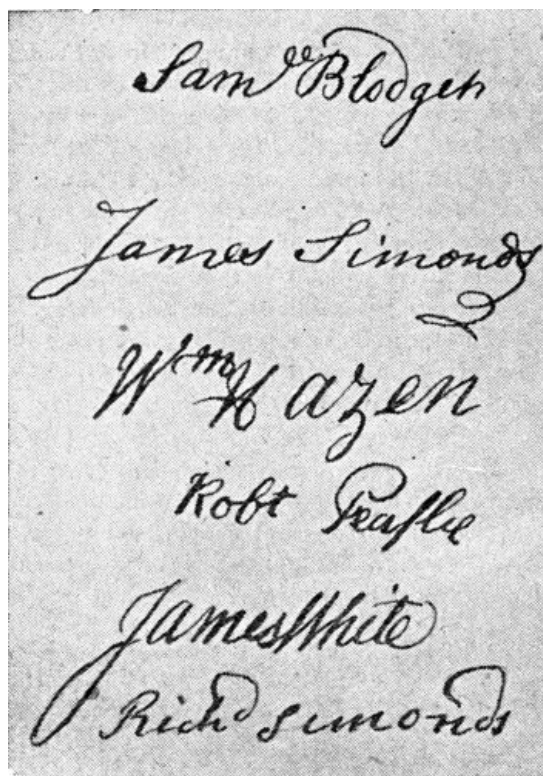 Saml Blodget
James Simonds
Wm Hazen
Robt Peaslie
James White
Richd Simonds